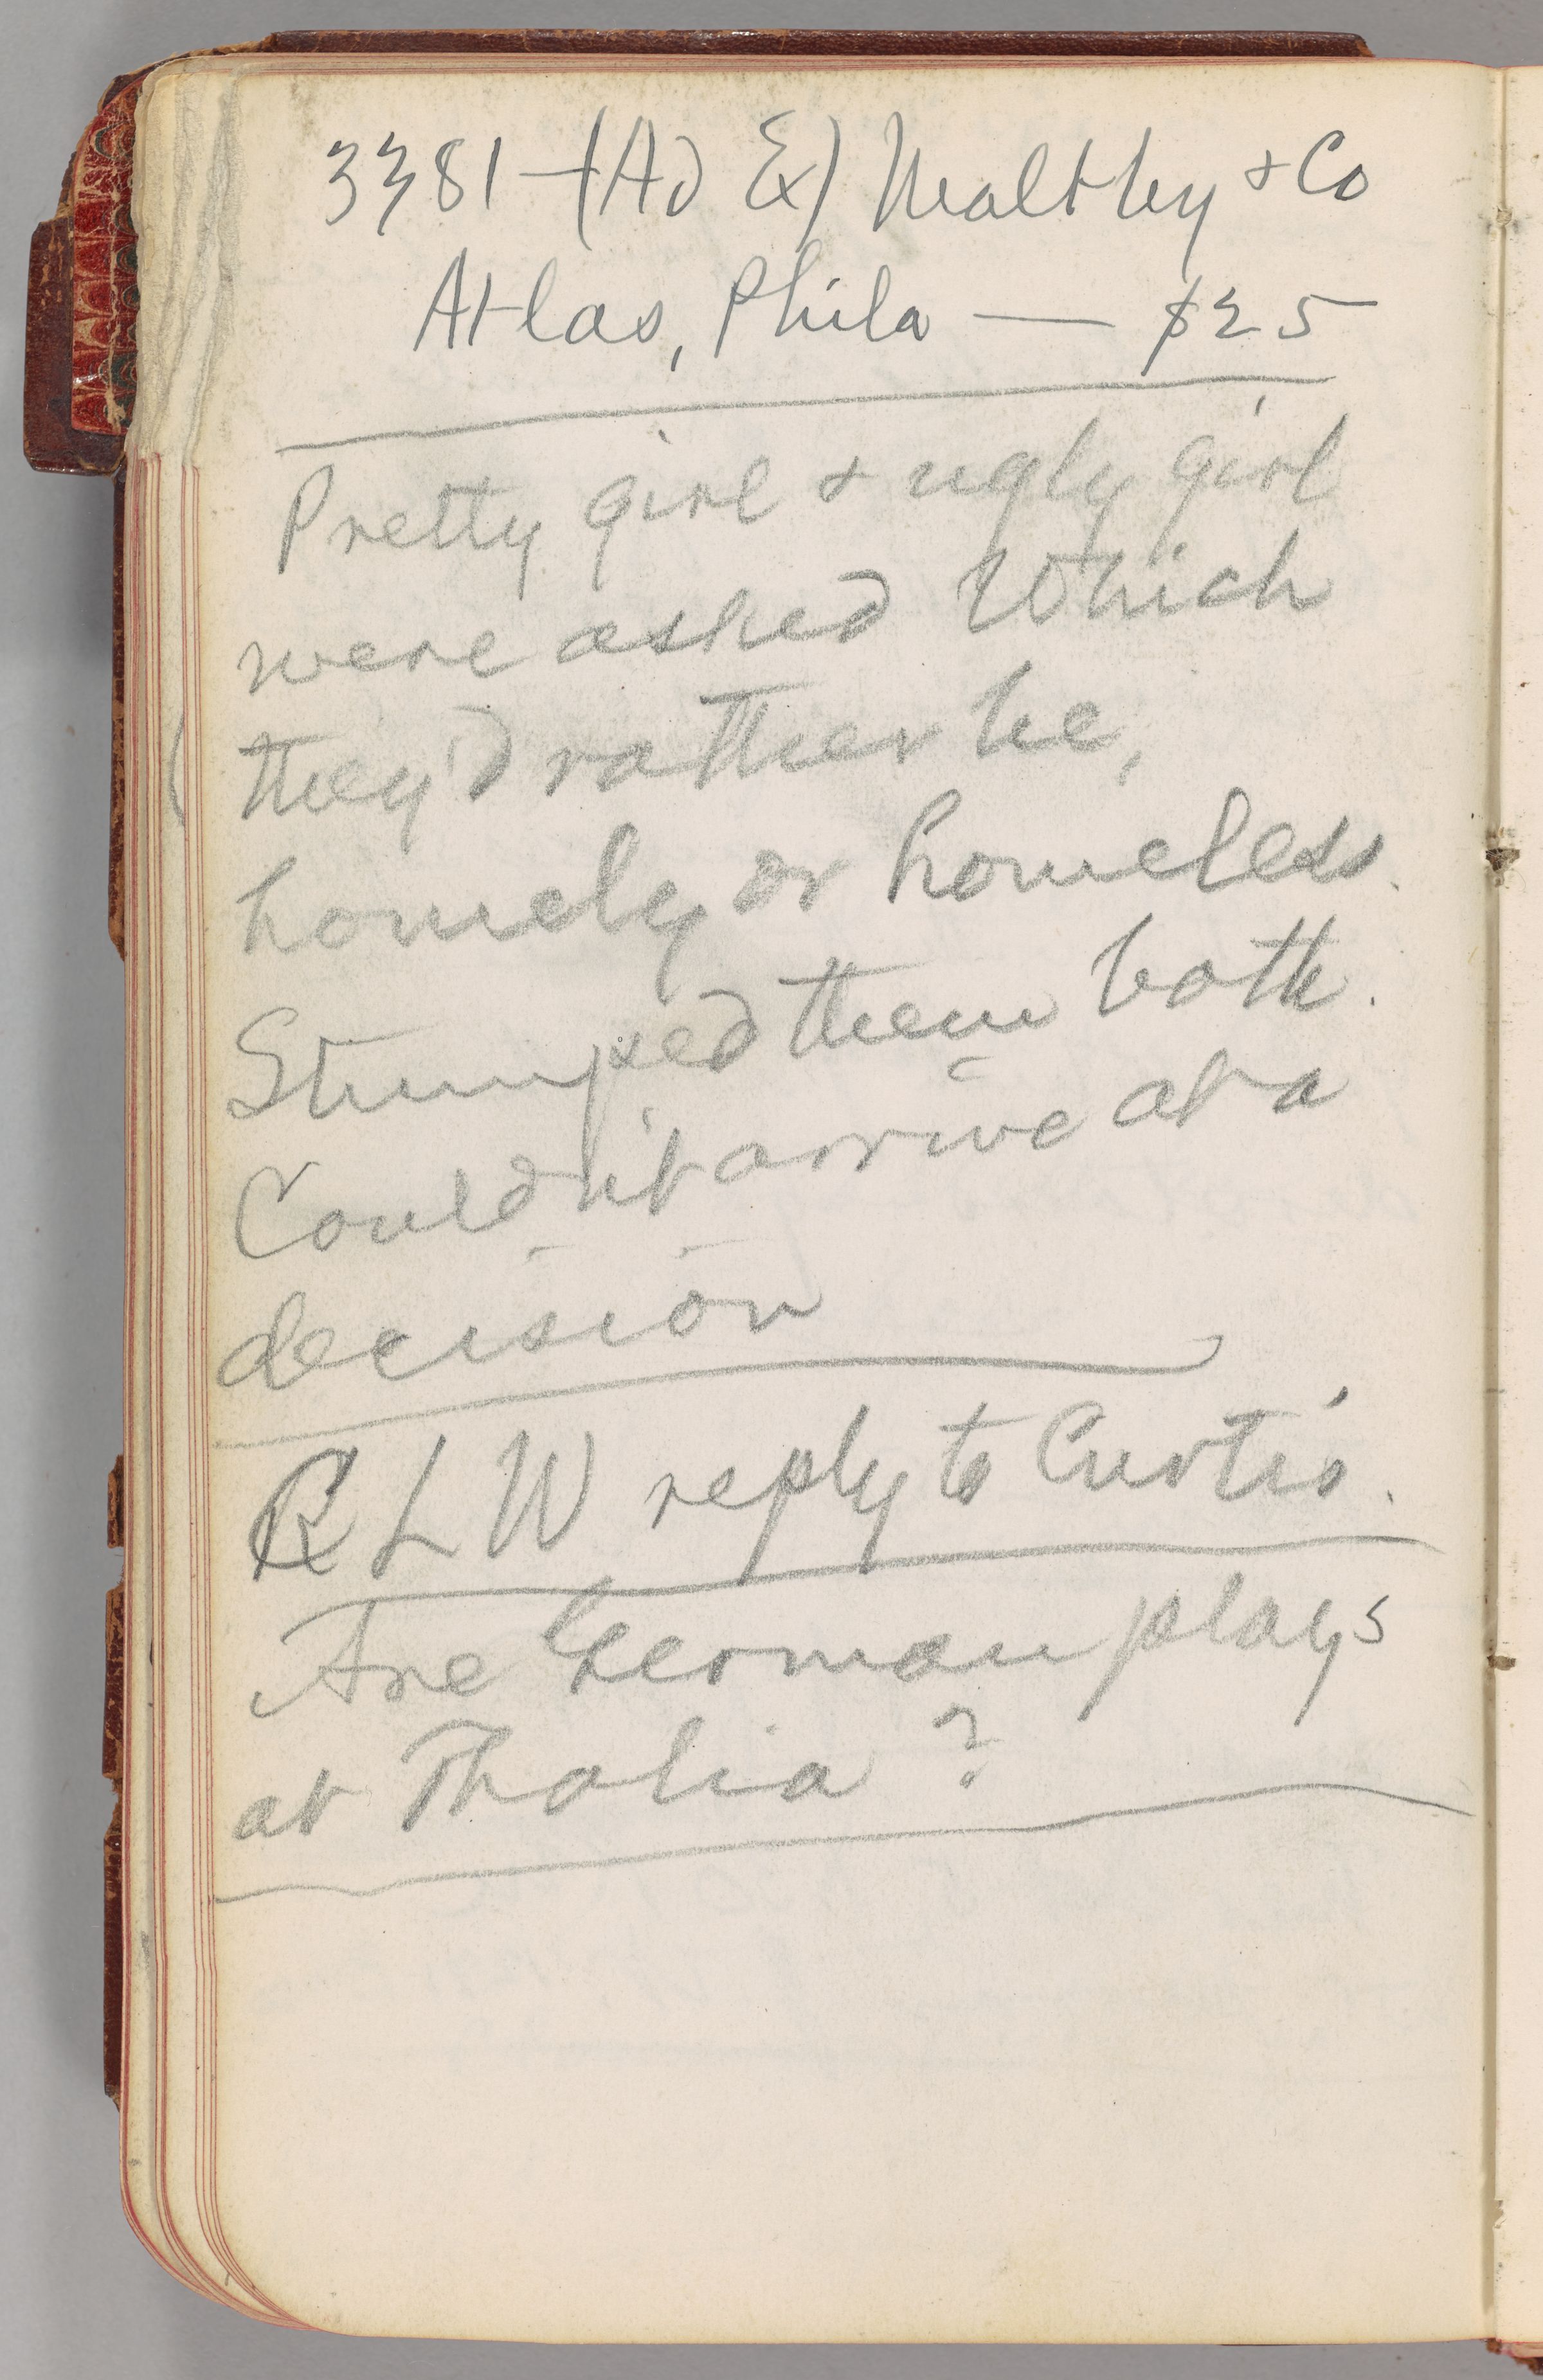 3381 — (Ad Ex) Nealthy + Co
Atlas, Phila — $25
Pretty girl + ugly girl
were asked Which
they'd rather be,
homely or homeless.
Stumped them both.
Couldn't arrive at a
decision
R L W reply to Curtis.
Are German plays
at Thalia?